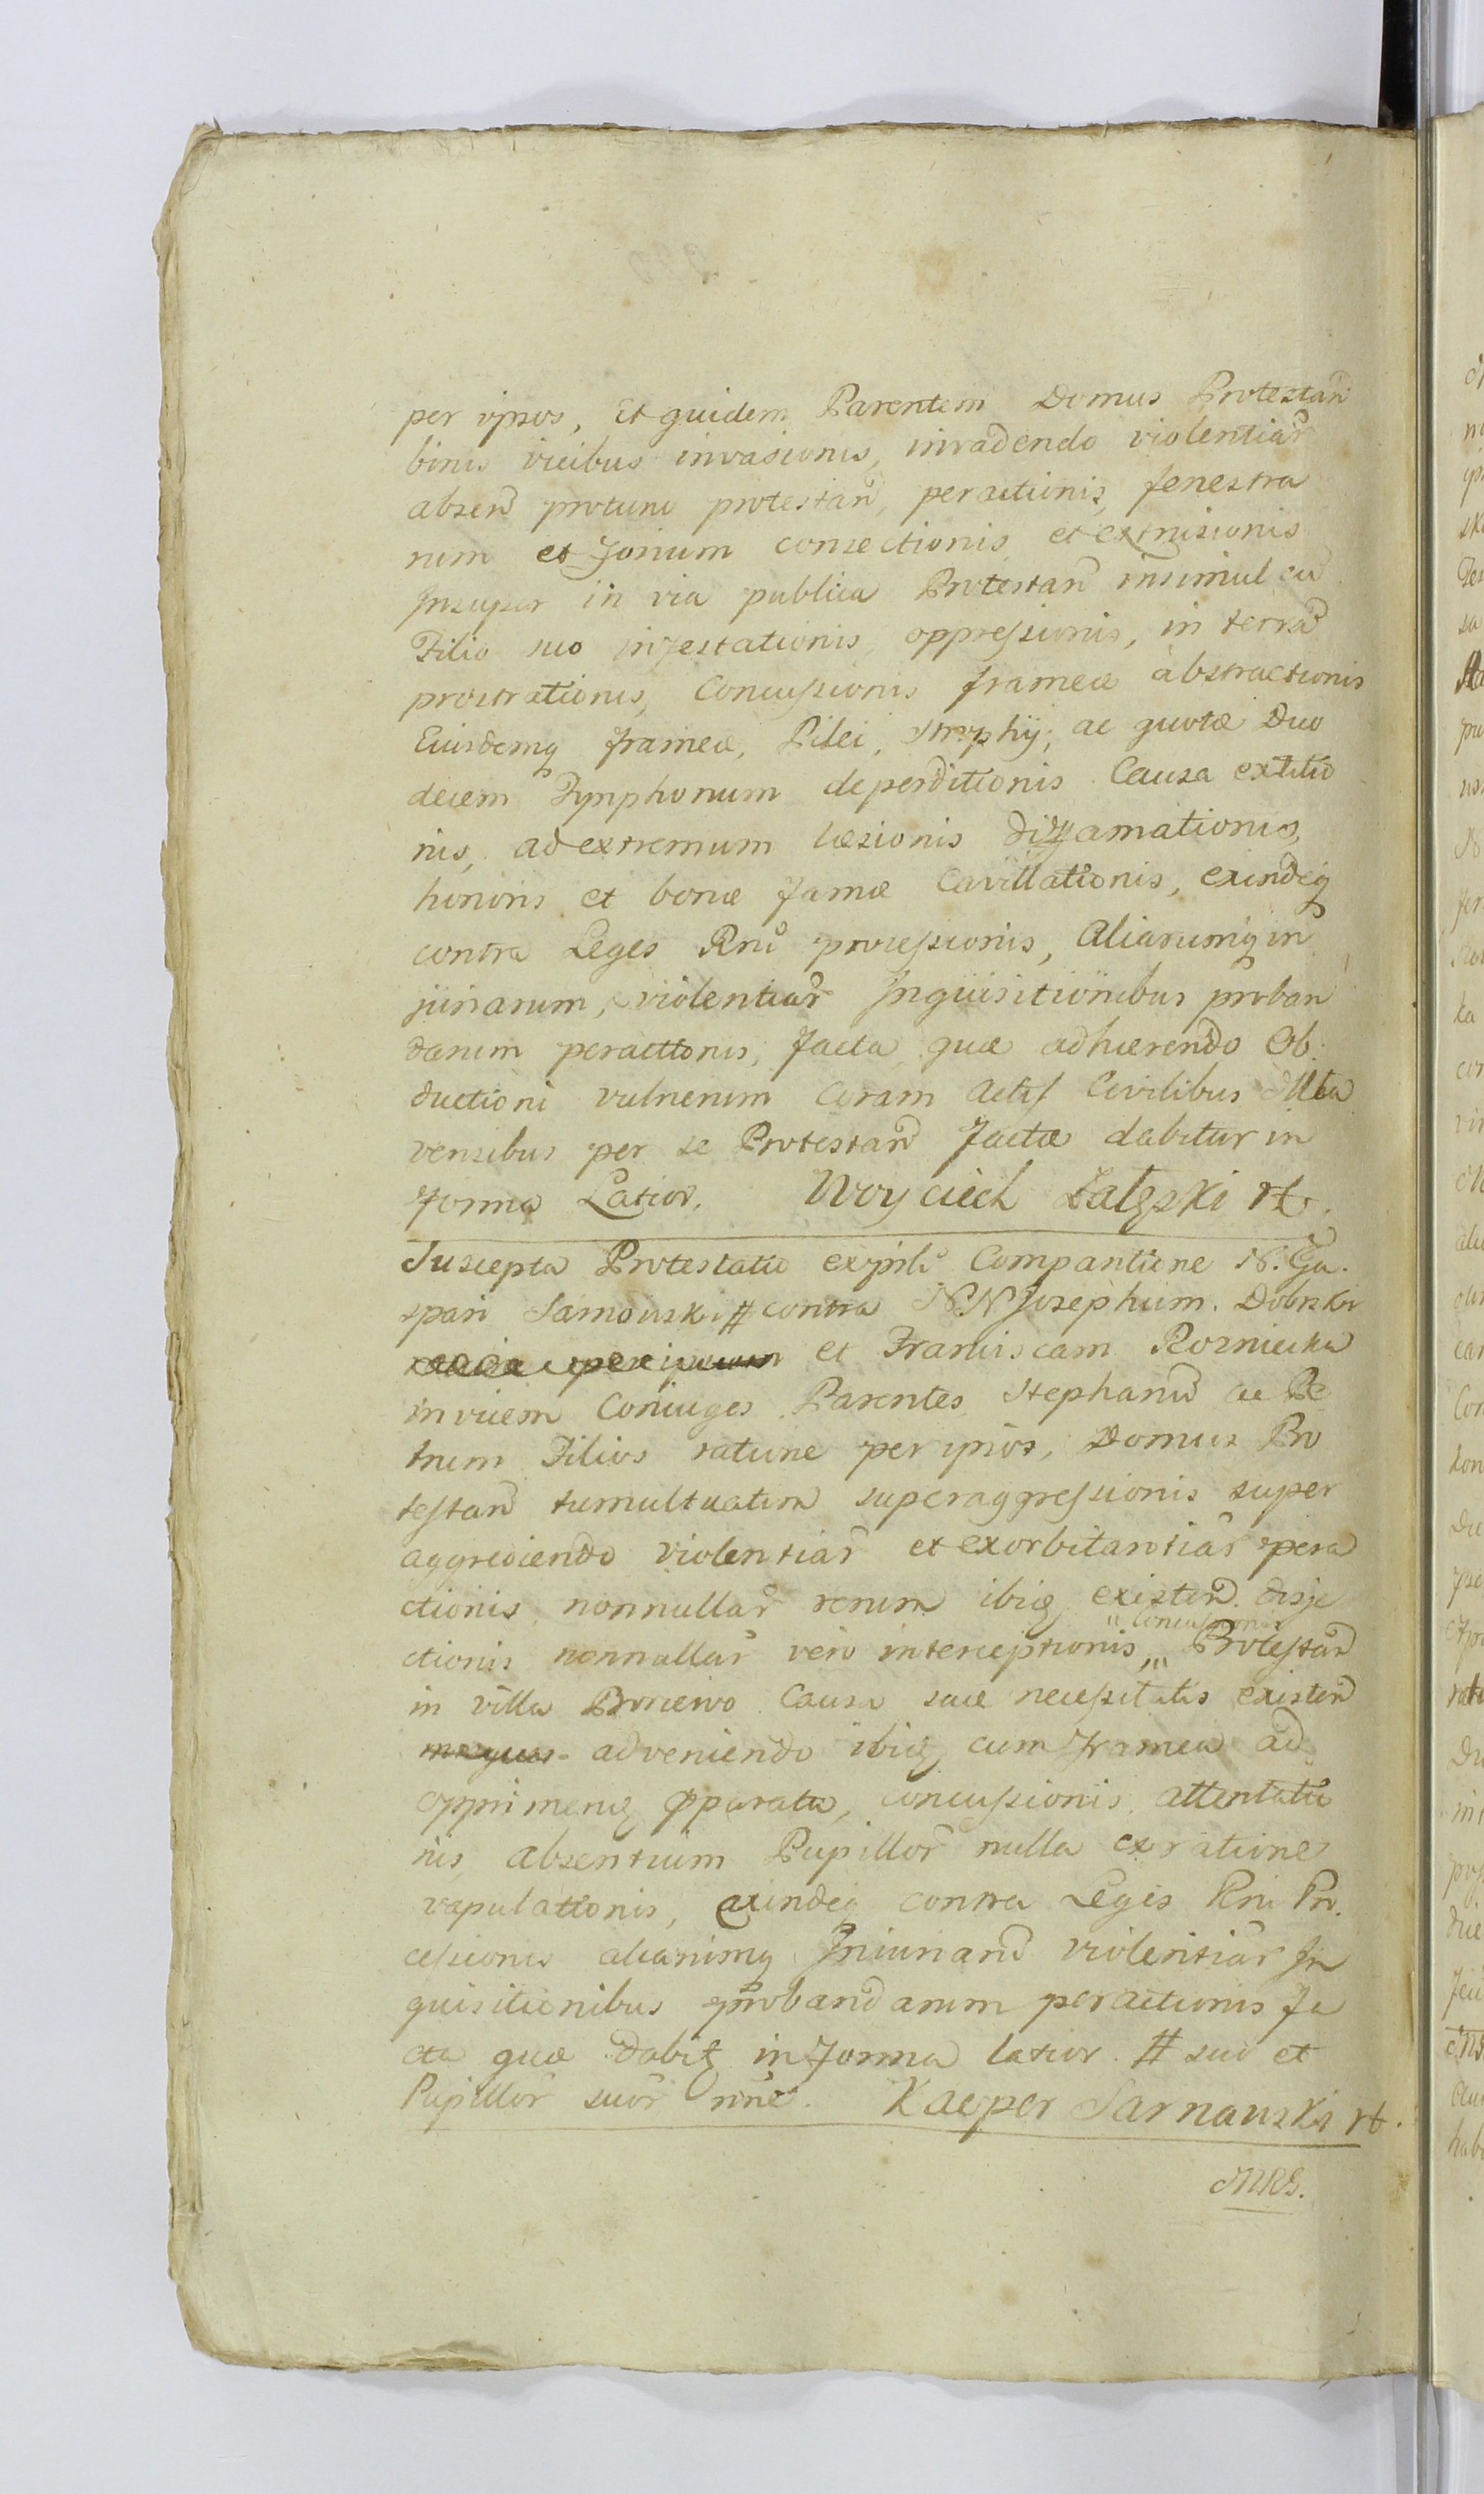 per ipsos, Et quidem Parentem Domus Protestañ
binis vicibus invasionis, invadendo violentiar̃
absen̄ protunc protestañ, peractionis, fenestra
rum et Forium consectionis et extrusionis
Insuper in via publica Protestañ insimul cũ
Filio suo infestationis, oppressionis, in terrã
prostrationis, Concussionis frameæ abstractionis
Eiusdemq frameæ, Pilei, Strophij, ac quotæ Duo
decem Tymphonum deperditionis Causa extitio
nis, ad extremum læsionis diffamationis,
honoris et bonæ famæ Cavillationis, exindeq
contra Leges Rni processionis, Aliarumq in
juriarum, violentiar̃ Inquisitionibus proban
darum peractionis, facta, quæ adhærendo Ob
ductioni vulnerum Coram Actis Civilibus Mla
vensibus per se Protestañ factæ dabitur in
forma Latior. Woyciech Zalęski rt.
Suscepta Protestatio ex psli Comparitione N. Ga
spari Sarnowski # contra NN Josephum Dobrski
et Franciscam Rozniecka
invicem Coniuges Parentes Stephanũ ac Pe
trum Filios ratione per ipsos, Domus Pro
testañ tumultuatim superaggressionis super
aggrediendo violentiar̃ et exorbitantiar̃ pera
ctionis nonnullar̃ rerum ibiq existeñ disje
ctionis nonnullar̃ vero interceptionis "" Protestañ
"Concussionis
in villa Broncino Causa suæ necessitatis existeñ
adveniendo ibiq cum framea ad
opprimenq pparata, concussionis attentatio
nis, absentium Pupillor̃ nulla ex ratione
vapulationis, exindeq contra Leges Rni Pro
cessionis aliarumq Iniuriarũ violentiar̃ In
quisitionibus probandarum peractionis fa
cta quæ dabit̃ in forma latior. # suo et
Pupillor̃ suor̃ nñe. Kacper Sarnawski rt.
MRS.